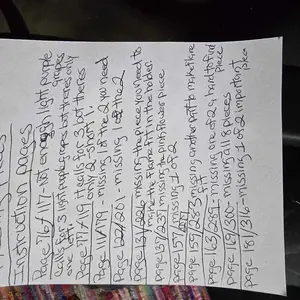 Instruction pages
Page 76/117 - not enough light purple
calls for 3 light purple grapes
one for
but theres only
Page 77/119 It calls for 3 but theres
only 2 - short 1.
Page 111/179 - missing 1 of the 2 you need
Page 122/201 - missing 1 of the 2
page 131/222 missing the piece you need to
make the frame fit in the holder
page 137/237 missing pink flower piece
page 157/ missing 1 of 2
page 159/283 missing another part to make flower
fit
page 163/289 - missing one of 2 a hard to find
piece
page 169/300 - missing all 8 pieces
page 181/316 - missing 1 of 2 important
piece